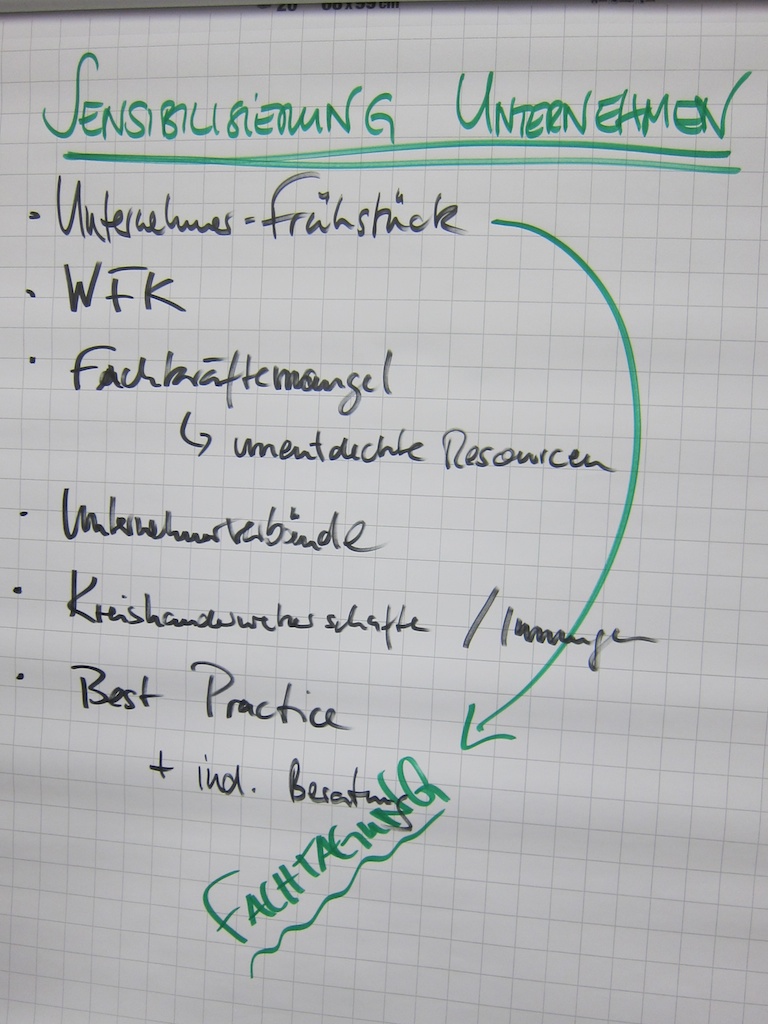 20 68x99cm
SENSIBILISIERUNG UNTERNEHMEN
• Unternehmer-Frühstück
• WFK
• Fachkräftemangel
↳ unentdeckte Resourcen
• Unternehmerverbände
• Kreishandwerkerschafte / Innungen
• Best Practice
+ ind. Beratung
FACHTAGUNG